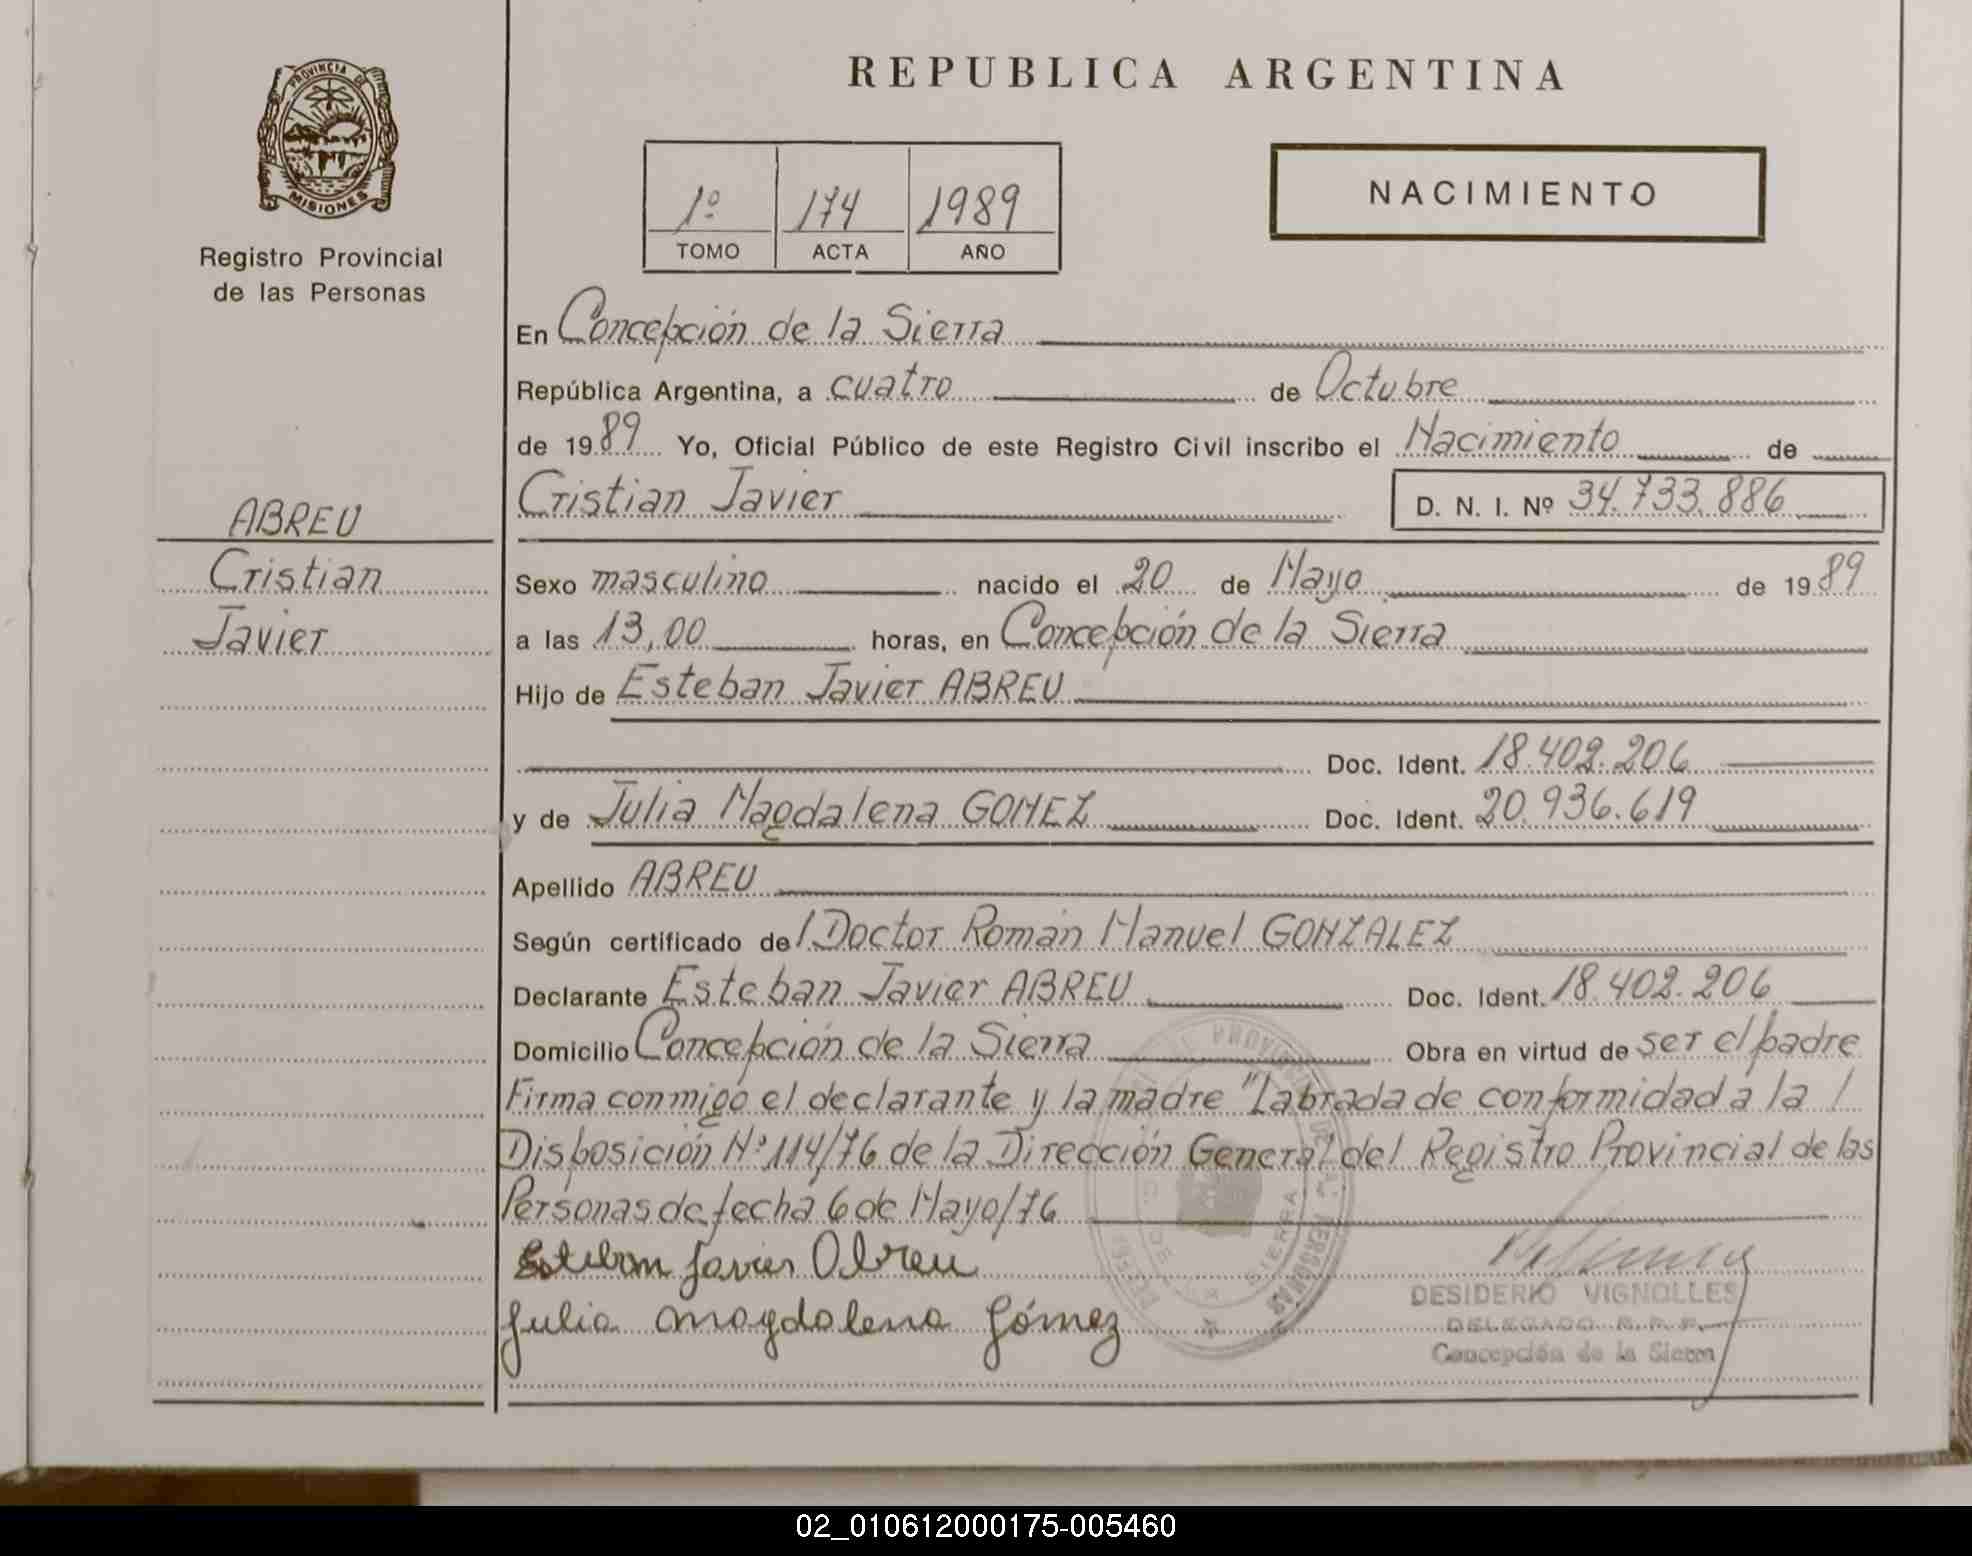 PROVINCIA DE
MISIONES
Registro Provincial
de las Personas
REPUBLICA ARGENTINA
1º 174 1989
TOMO ACTA AÑO
NACIMIENTO
En Concepción de la Sierra
República Argentina, a cuatro de Octubre
de 1989 Yo, Oficial Público de este Registro Civil inscribo el Nacimiento de
Cristian Javier D. N. I. Nº 34.733.886
ABREU
Cristian
Javier
Sexo masculino nacido el 20 de Mayo de 1989
a las 13,00 horas, en Concepción de la Sierra
Hijo de Esteban Javier ABREU
Doc. Ident. 18.402.206
y de Julia Magdalena GOMEZ Doc. Ident. 20.936.619
Apellido ABREU
Según certificado del Doctor Román Manuel GONZALEZ
Declarante Esteban Javier ABREU Doc. Ident. 18.402.206
Domicilio Concepción de la Sierra Obra en virtud de ser el padre
Firma conmigo el declarante y la madre "Labrada de conformidad a la /
Disposición Nº 114/76 de la Dirección General del Registro Provincial de las
Personas de fecha 6 de Mayo/76
Esteban Javier Abreu
Julia Magdalena Gómez
DESIDERIO VIGNOLLES
DELEGADO R. P. P.
Concepción de la Sierra
02_010612000175-005460